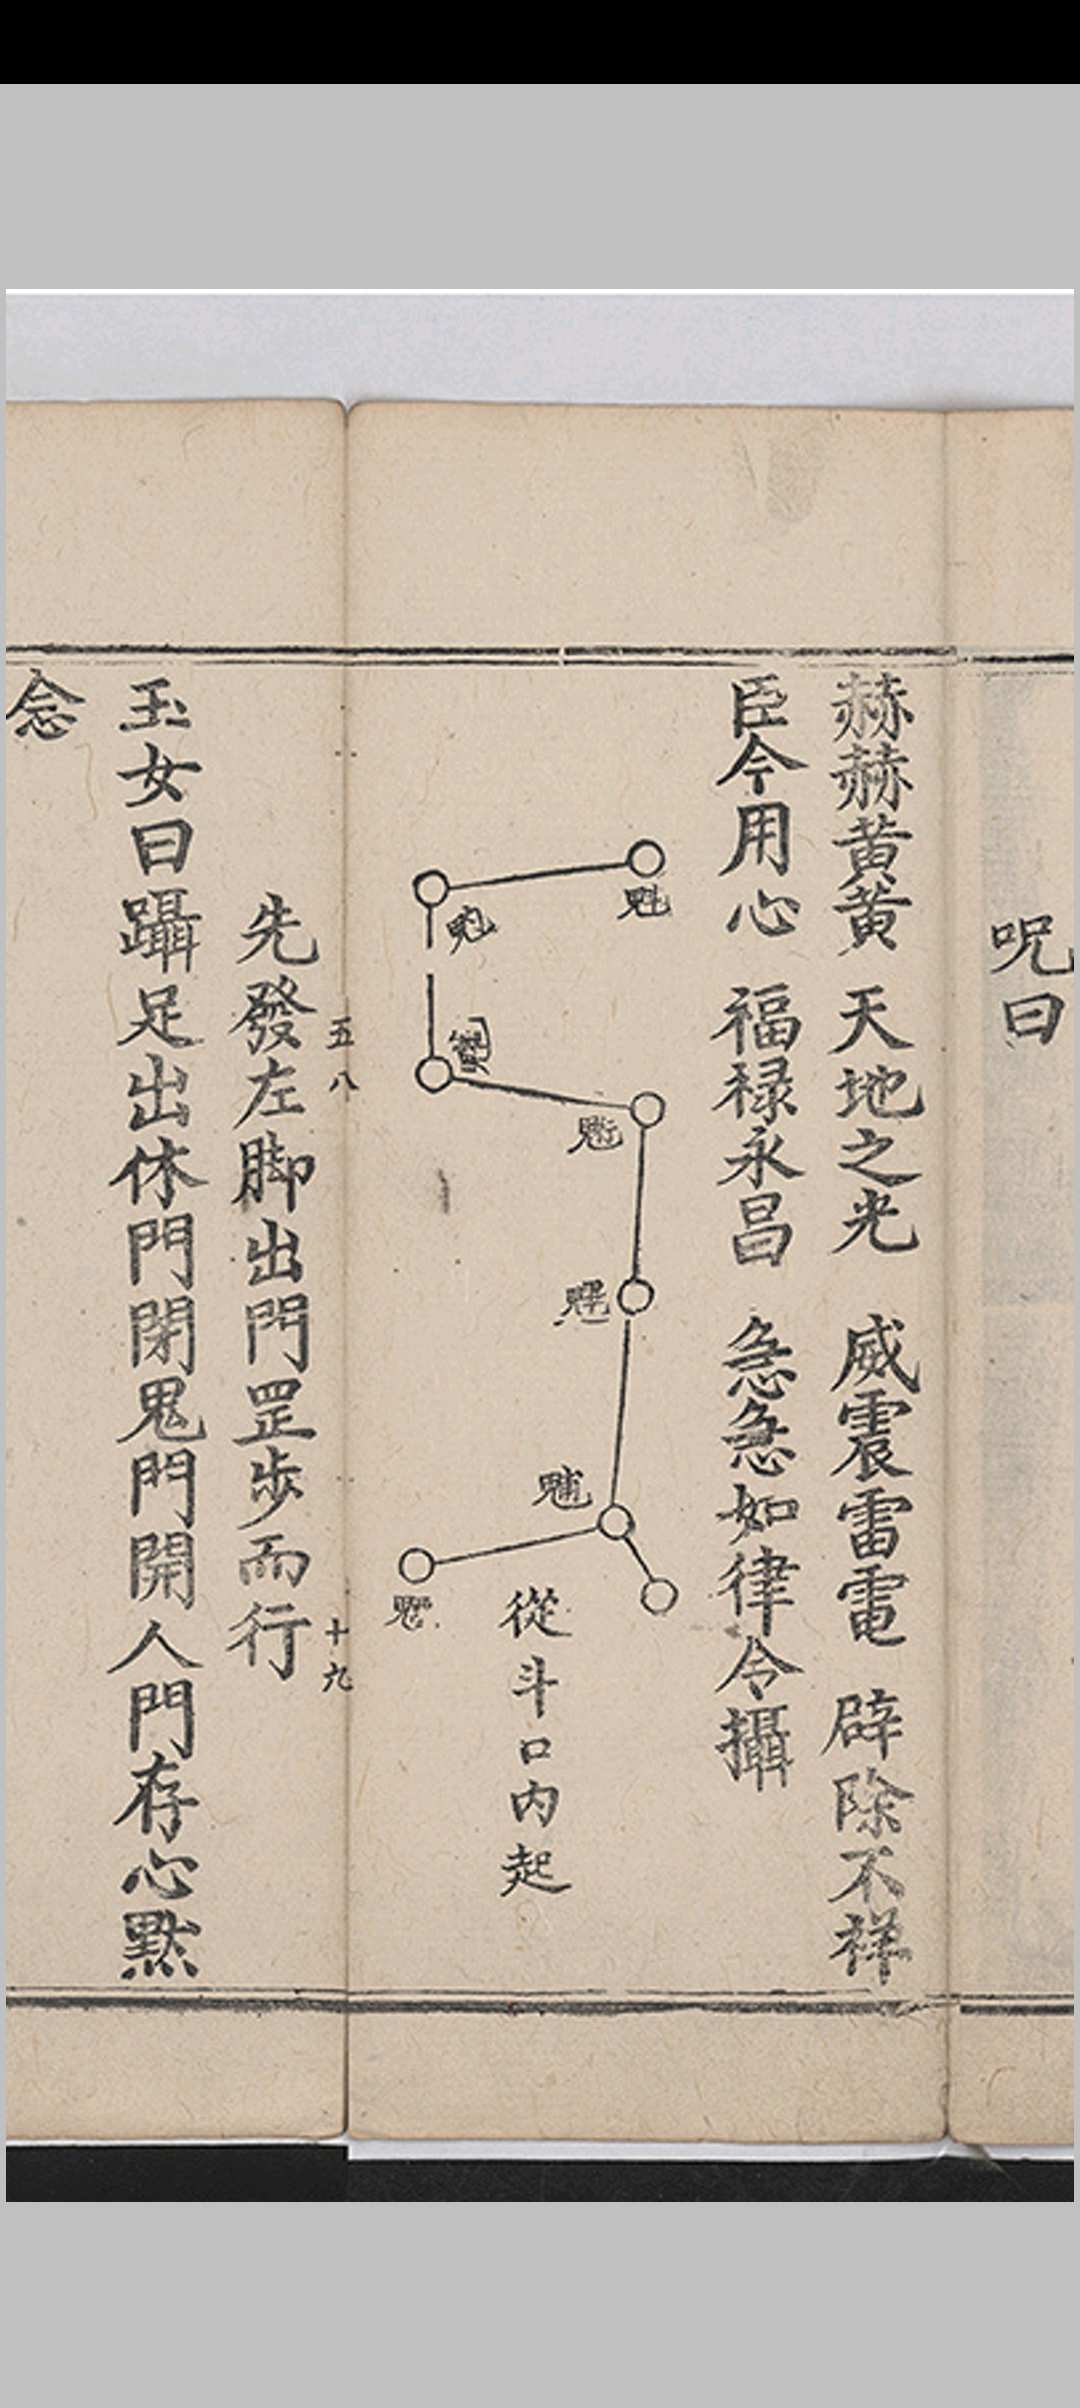 呪曰
赫赫黄黄 天地之光 威震雷電 辟除不祥
臣今用心 福禄永昌 急急如律令攝
魁
魀
魓
從斗口内起
五八
十九
先發左脚出門罡步而行
玉女曰躡足出休門閉鬼門開人門存心默
念